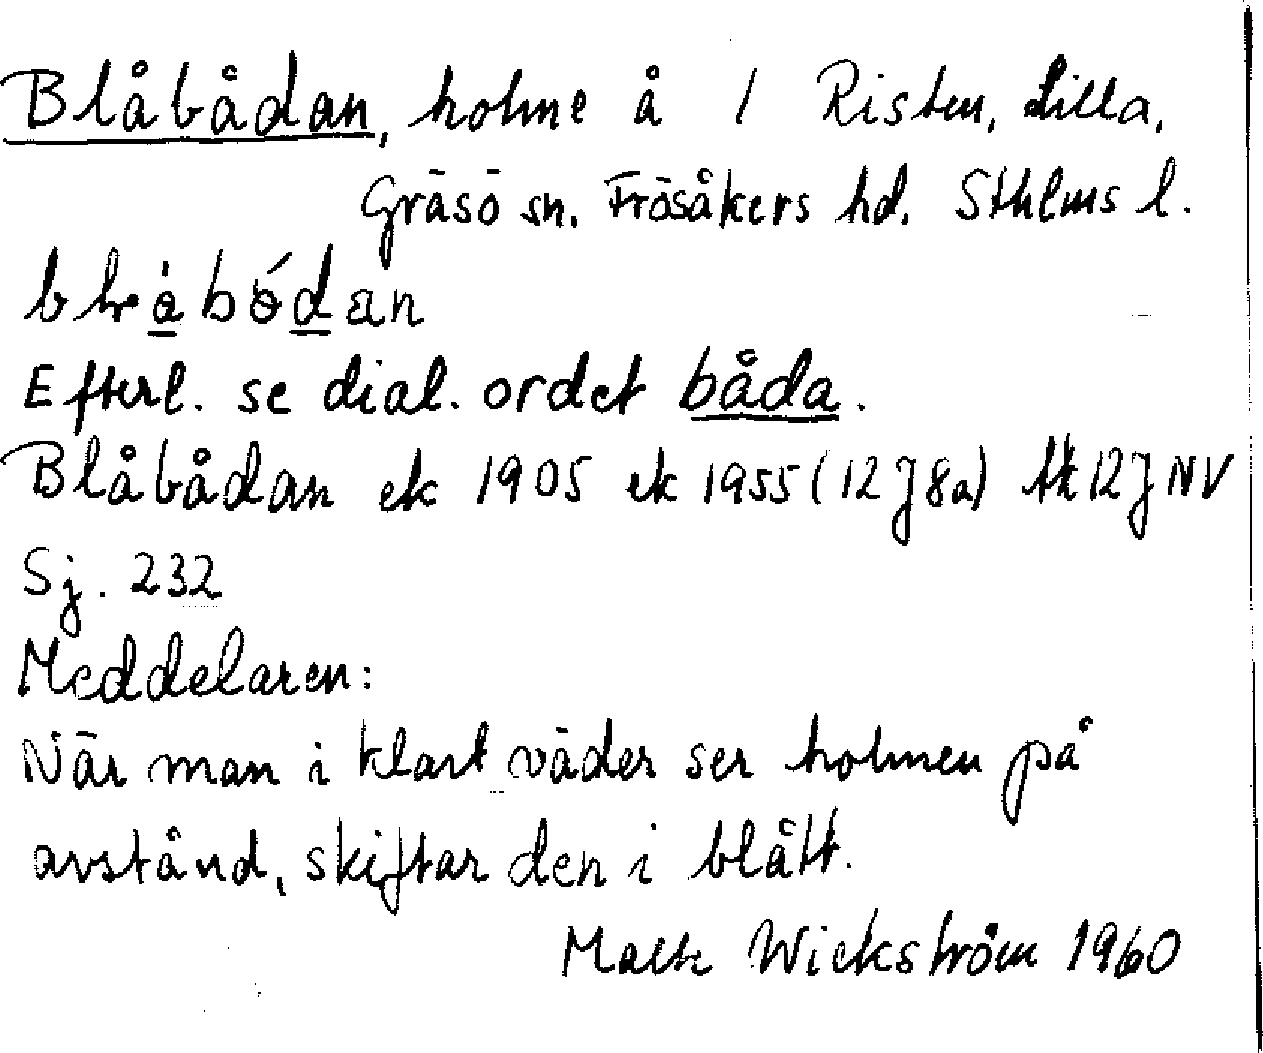 Blåbådan, holme å 1 Risten, Lilla,
Gräsö sn. Frösåkers hd. Sthlms l.
bódan
Efterl. se dial. ordet båda.
Blåbådan ek 1905 ek 1955 (12J8a) tk 12J NV
Sj. 232
Meddelaren:
När man i klart väder ser holmen på
avstånd, skiftar den i blått.
Wickström 1960